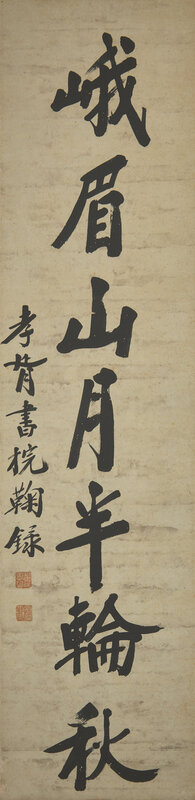 峨眉山月半輪秋
孝胥書梡鞠録